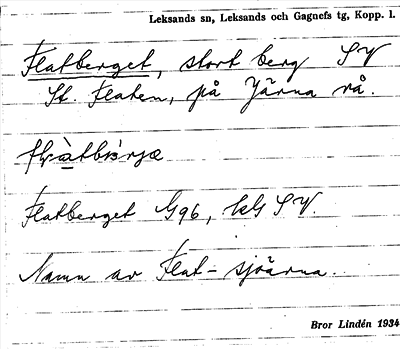 Leksands sn, Leksands och Gagnefs tg, Kopp. l.
Flatberget, stort berg SV
St. Flaten, på Järna rå.
Flatberget G96, kbl SV.
Namn av Flat-sjöarna.
Bror Lindén 1934